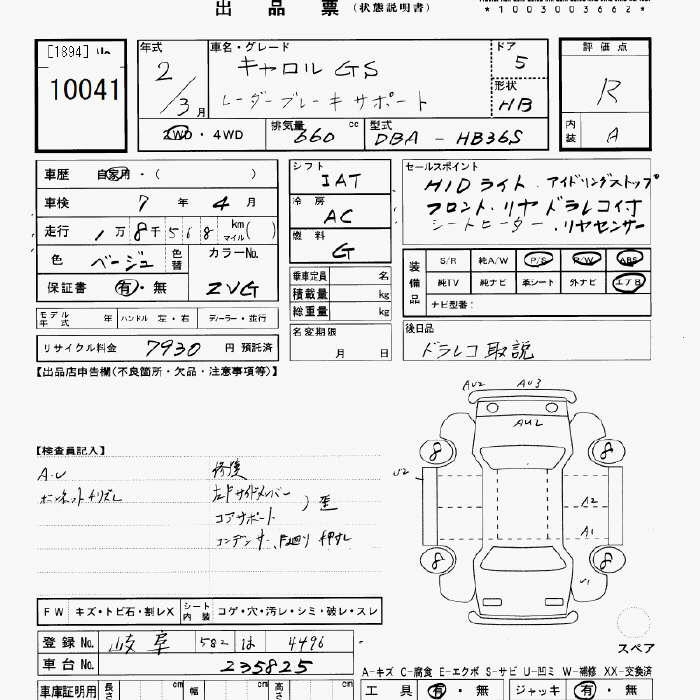 出品票（状態説明書）
*1003003662*
[1894]
10041
年式 2/3月
車名・グレード キャロル GS
レーダーブレーキサポート
ドア 5
形状 HB
評価点 R
内装 A
2WD・4WD
排気量 660 cc
型式 DBA - HB36S
車歴 自家用・( )
車検 7年 4月
走行 1万8千568 km マイル( )
色 ベージュ 色替
カラーNo. ZVG
保証書 有・無
シフト IAT
冷房 AC
燃料 G
乗車定員 名
積載量 kg
総重量 kg
名変期限 月 日
セールスポイント
HIDライト・アイドリングストップ
フロント・リヤ ドラレコ付
シートヒーター・リヤセンサー
装備品 S/R 純A/W P/S P/W ABS
純TV 純ナビ 革シート 外ナビ エアB
ナビ型番：
後日品
ドラレコ取説
モデル年式 年 ハンドル 左・右 ディーラー・並行
リサイクル料金 7930 円 預託済
【出品店申告欄(不良箇所・欠品・注意事項等)】
【検査員記入】
A・U
ボンネットチリズレ
修復
左Fサイドメンバー
コアサポート
）歪
コンデンサー
AU2 AU3
AU2
8 8
U2
A2
A1
8 8
U1
スペア
FW キズ・トビ石・割レX シート内装 コゲ・穴・汚レ・シミ・破レ・スレ
登録No. 岐阜 582 は 4496
車台No. 235825
A-キズ C-腐食 E-エクボ S-サビ U-凹ミ W-補修 XX-交換済
車庫証明用 長さ cm 幅 cm 高さ cm
工具 有・無 ジャッキ 有・無